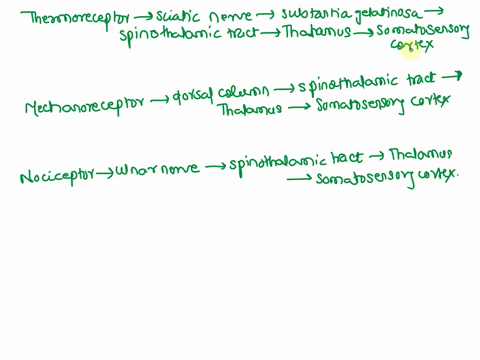 Thermoreceptor → sciatic nerve → substantia gelatinosa →
spinothalamic tract → Thalamus → Somatosensory
cortex
Mechanoreceptor → dorsal column → spinothalamic tract →
Thalamus → Somatosensory cortex
Nociceptor → ulnar nerve → spinothalamic tract → Thalamus
→ somatosensory cortex.